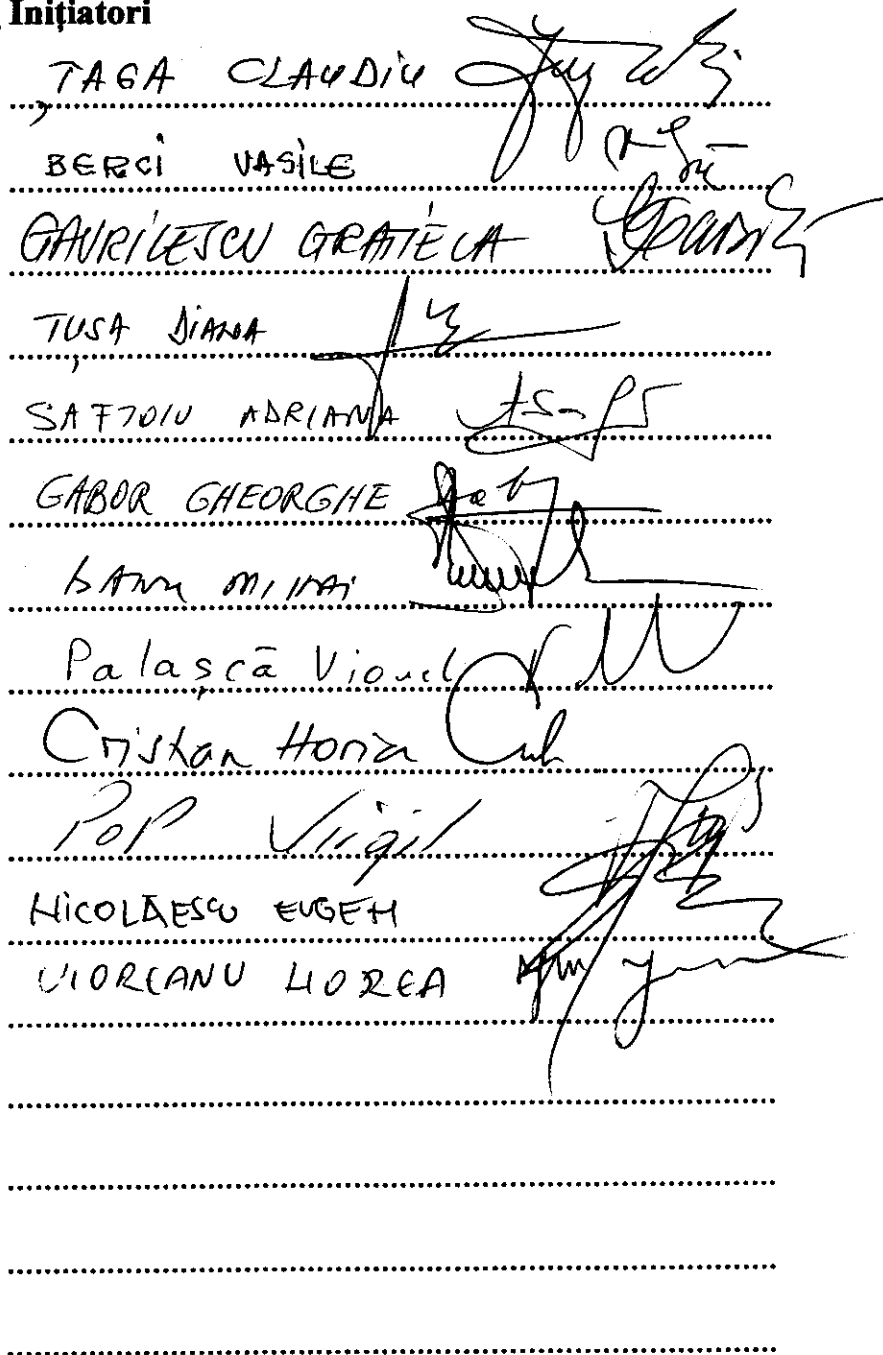 Inițiatori
ȚAGA CLAUDIU
BERCI VASILE
GAVRILESCU GRAȚIELA
TUȘA DIANA
SAFTOIU ADRIANA
GABOR GHEORGHE
BANU MIHAI
Palașcă Viorel
Cristian Horia
POP Virgil
NICOLĂESCU EUGEN
UIOREANU HOREA